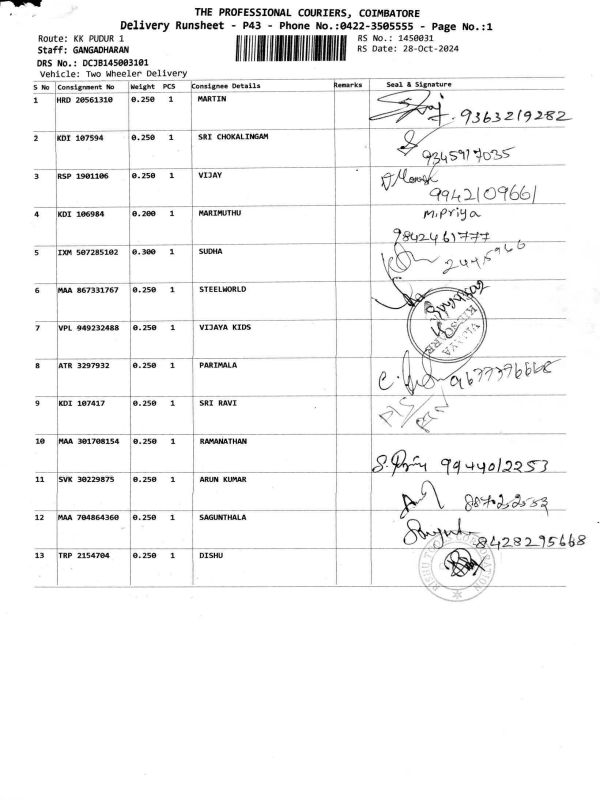 THE PROFESSIONAL COURIERS, COIMBATORE
Delivery Runsheet - P43 - Phone No.:0422-3505555 - Page No.:1
Route: KK PUDUR 1 RS No.: 1450031
Staff: GANGADHARAN RS Date: 28-Oct-2024
DRS No.: DCJB145003101
Vehicle: Two Wheeler Delivery
S No Consignment No Weight PCS Consignee Details Remarks Seal & Signature
1 HRD 20561310 0.250 1 MARTIN 9363219282
2 KDI 107594 0.250 1 SRI CHOKALINGAM 9345917035
3 RSP 1901106 0.250 1 VIJAY 9942109661
4 KDI 106984 0.200 1 MARIMUTHU M.Priya
9842461777
5 IXM 507285102 0.300 1 SUDHA 2445966
6 MAA 867331767 0.250 1 STEELWORLD
7 VPL 949232488 0.250 1 VIJAYA KIDS VIJAYA
8 ATR 3297932 0.250 1 PARIMALA
9 KDI 107417 0.250 1 SRI RAVI
10 MAA 301708154 0.250 1 RAMANATHAN 9944012253
11 SVK 30229875 0.250 1 ARUN KUMAR
12 MAA 704864360 0.250 1 SAGUNTHALA 8428295668
13 TRP 2154704 0.250 1 DISHU